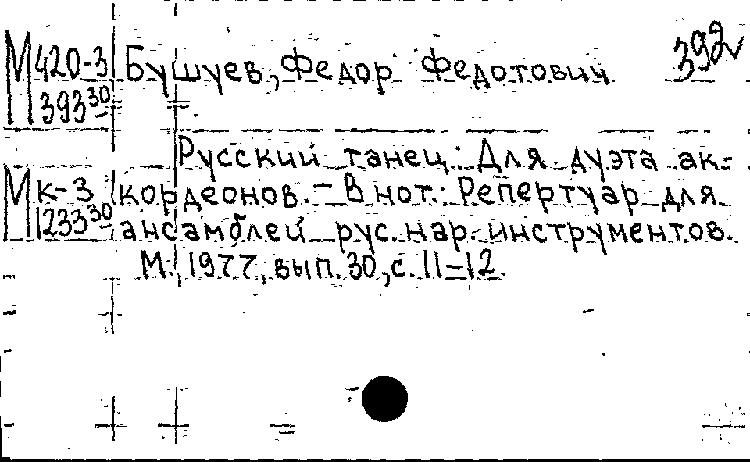 М420-3 Бушуев, Федор Федотович 392
393³⁰
Русский танец: Для дуэта ак-
Мк-3 кордеонов. – В нот.: Репертуар для
1233³⁰ ансамблей рус. нар. инструментов.
М., 1977, вып. 30, с. 11–12.